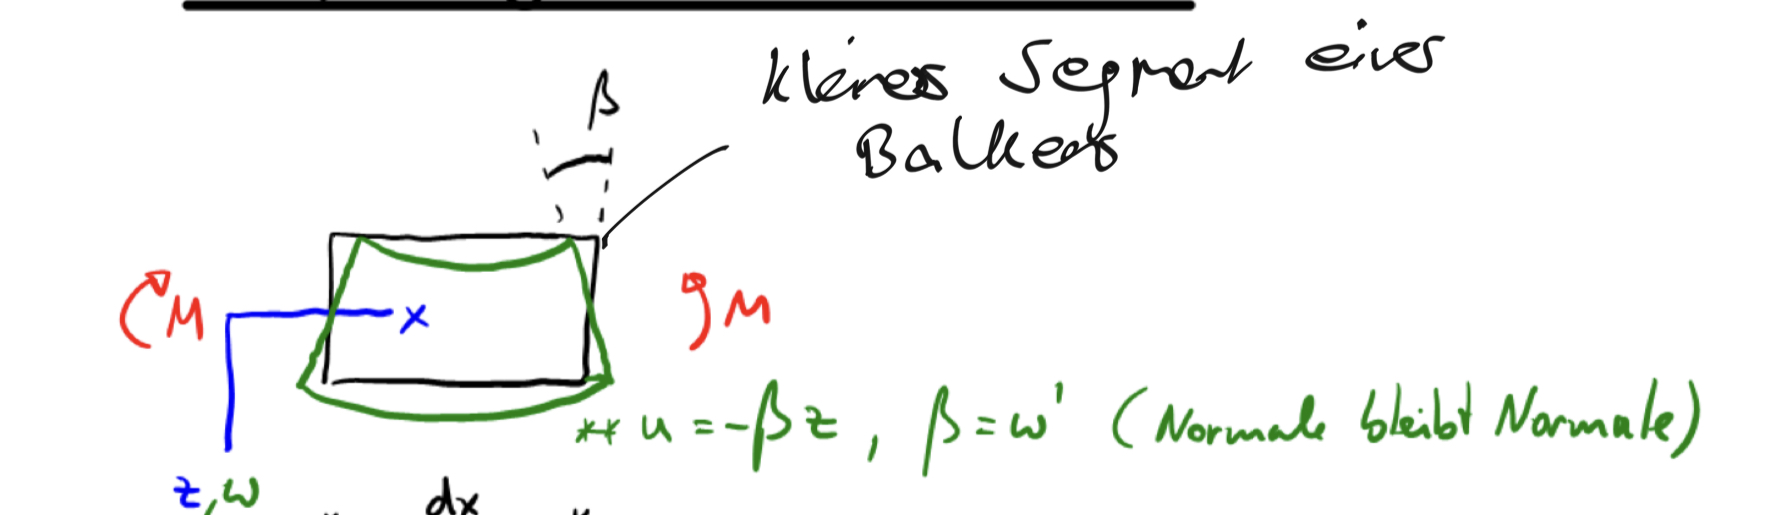 β
kleines Segment eines
Balkens
M
x
M
** u = -βz , β = w' (Normale bleibt Normale)
z, w
dx